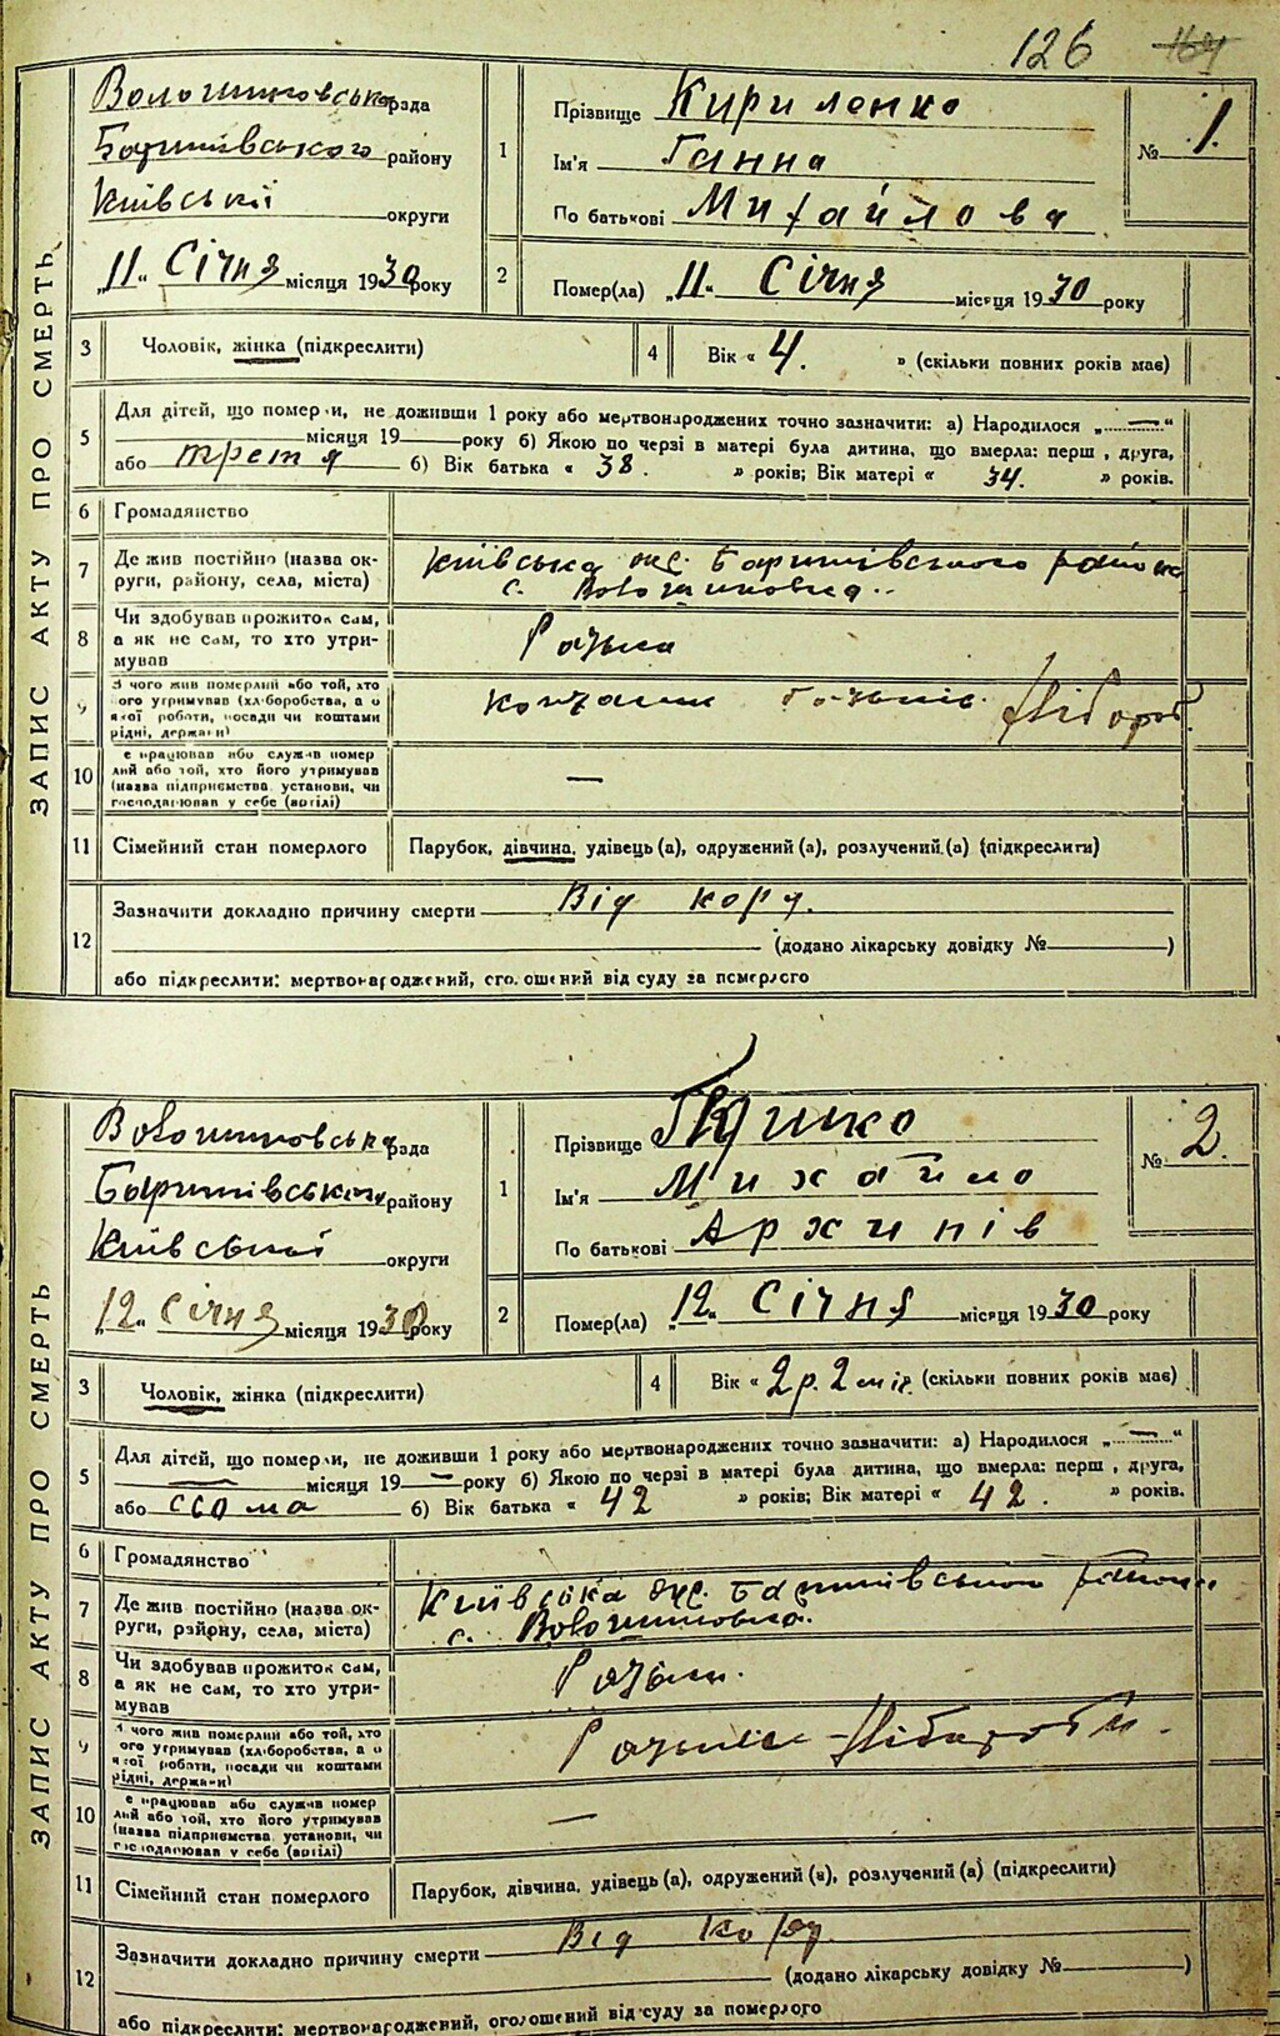 126 164
ЗАПИС АКТУ ПРО СМЕРТЬ
Волошиновська рада
Баришівського району
Київської округи
„11" Січня місяця 1930 року
1 Прізвище Кириленко
Ім'я Ганна
По батькові Михайлова
№ 1.
2 Помер(ла) „11" Січня місяця 1930 року
3 Чоловік, жінка (підкреслити)
4 Вік « 4. » (скільки повних років має)
5 Для дітей, що померли, не доживши 1 року або мертвонароджених точно зазначити: а) Народилося „ — "
місяця 19 року б) Якою по черзі в матері була дитина, що вмерла: перш , друга,
або третя б) Вік батька « 38. » років; Вік матері « 34. » років.
6 Громадянство
7 Де жив постійно (назва ок-
руги, району, села, міста)
Київська окр. Баришівського района
с. Волошиновка..
8 Чи здобував прожиток сам,
а як не сам, то хто утри-
мував
9 З чого жив померлий або той, хто
ого утримував (хліборобства, а о
якої роботи, посади чи коштами
рідні, держави)
Хлібороб.
10 е працював або служив помер
лий або той, хто його утримував
(назва підприємства установи, чи
господарював у себе (вдома)
—
11 Сімейний стан померлого Парубок, дівчина, удівець (а), одружений (а), розлучений (а) (підкреслити)
12 Зазначити докладно причину смерти Від кору.
(додано лікарську довідку № )
або підкреслити: мертвонароджений, оголошений від суду за померлого
ЗАПИС АКТУ ПРО СМЕРТЬ
Волошиновська рада
Баришівського району
Київської округи
„12" Січня місяця 1930 року
1 Прізвище
Ім'я Михайло
По батькові Архипів
№ 2.
2 Помер(ла) „12" Січня місяця 1930 року
3 Чоловік, жінка (підкреслити)
4 Вік « 2 р. 2 міс. (скільки повних років має)
5 Для дітей, що померли, не доживши 1 року або мертвонароджених точно зазначити: а) Народилося „ — "
— місяця 19 — року б) Якою по черзі в матері була дитина, що вмерла: перш , друга,
або сьома б) Вік батька « 42 » років; Вік матері « 42. » років.
6 Громадянство
7 Де жив постійно (назва ок-
руги, району, села, міста)
Київська окр. Баришівського района
с. Волошиновка.
8 Чи здобував прожиток сам,
а як не сам, то хто утри-
мував
9 З чого жив померлий або той, хто
ого утримував (хліборобства, а о
якої роботи, посади чи коштами
рідні, держави)
10 е працював або служив помер
лий або той, хто його утримував
(назва підприємства установи, чи
господарював у себе (вдома)
—
11 Сімейний стан померлого Парубок, дівчина, удівець (а), одружений (а), розлучений (а) (підкреслити)
12 Зазначити докладно причину смерти Від кору.
(додано лікарську довідку № )
або підкреслити: мертвонароджений, оголошений від суду за померлого